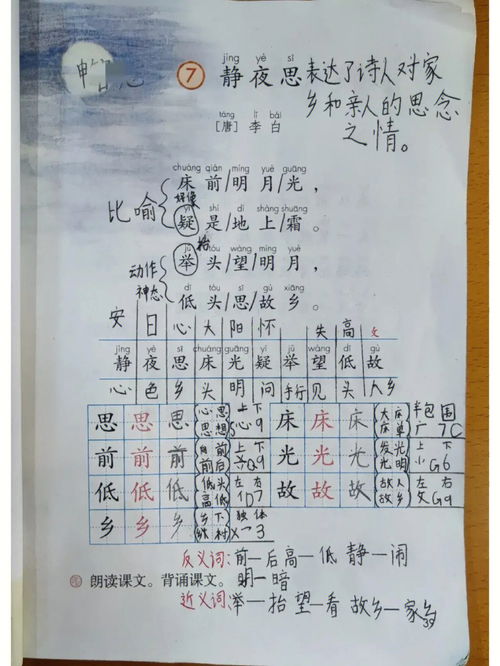 jìng yè sī
7 静夜思 表达了诗人对家
乡和亲人的思念
之情。
táng lǐ bái
[唐] 李白
chuáng qián míng yuè guāng
床前/明月/光，
好像
比喻
yí shì dì shàng shuāng
疑是/地上/霜。
抬
jǔ tóu wàng míng yuè
举头/望/明月，
动作
神态
dī tóu sī gù xiāng
低头/思/故乡。
安 日 心 大 阳 怀 失 高
jìng yè sī chuáng guāng yí jǔ wàng dī gù
静 夜 思 床 光 疑 举 望 低 故
心 色 乡 头 明 问 手行 见 头 人乡
思 思 思 心思 思想 上下 心 9
床 床 床 大床 床单 半包围 广 7C
前 前 前 前后 上下 9
光 光 光 发光 光明 上下 G6
低 低 低 低头 高低 左右 1D7
故 故 故 故人 故乡 左右 攵G9
乡 乡 乡 乡下 乡村 独体 3
反义词：前—后 高—低 静—闹
朗读课文。背诵课文。 明—暗
近义词：举—抬 望—看 故乡—家乡
39